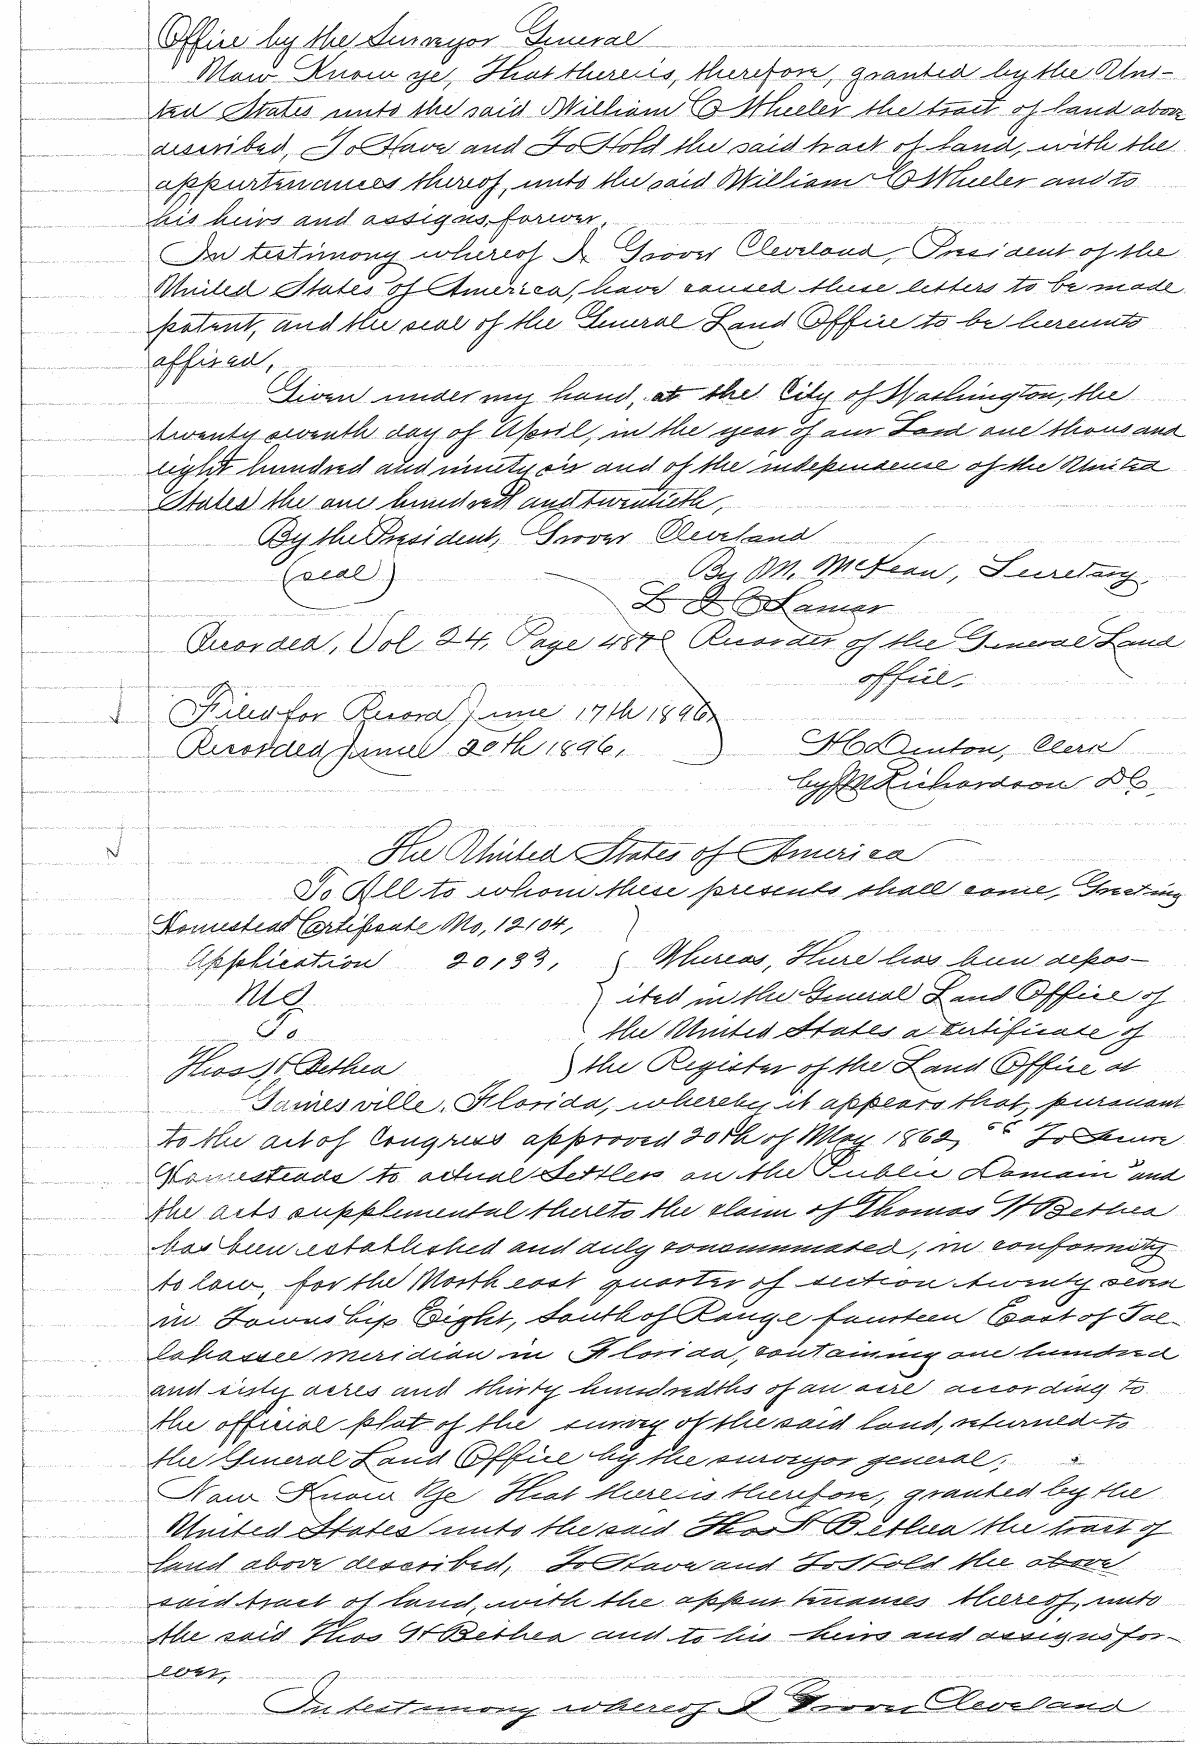 Office by the Surveyor General
Now Know ye, That there is, therefore, granted by the Uni-
ted States unto the said William C Wheeler the tract of land above
described, To Have and To Hold the said tract of land, with the
appurtenances thereof, unto the said William C Wheeler and to
his heirs and assigns, forever.
In testimony whereof I Grover Cleveland, President of the
United States of America, have caused these letters to be made
patent, and the seal of the General Land Office to be hereunto
affixed,
Given under my hand, at the City of Washington, the
twenty seventh day of April, in the year of our Lord one thousand
eight hundred and ninety six and of the independence of the United
States the one hundred and twentieth,
By the President, Grover Cleveland
(seal) By M. McKean, Secretary,
L Q C Lamar
Recorded, Vol 24, Page 487 Recorder of the General Land
office.
Filed for Record June 17th 1896,
Recorded June 20th 1896, H C Denton, Clerk
by J M Richardson DC,
The United States of America
To All to whom these presents shall come, Greeting
Homestead Certificate No, 12104,
Application 20133, Whereas, There has been depos-
ited in the General Land Office of
To the United States a certificate of
Thos H Bethea the Register of the Land Office at
Gainesville, Florida, whereby it appears that, pursuant
to the act of Congress approved 20th of May 1862, "To Secure
Homesteads to actual Settlers on the Public Domain" and
the acts supplemental thereto the claim of Thomas H Bethea
has been established and duly consummated, in conformity
to law, for the North east quarter of section twenty seven
in Township Eight, South of Range fourteen East of Tal-
lahassee meridian in Florida, containing one hundred
and sixty acres and thirty hundredths of an acre according to
the official plat of the survey of the said land, returned to
the General Land Office by the surveyor general,
Now Know Ye That there is therefore, granted by the
United States unto the said Thos H Bethea the tract of
land above described, To Have and To Hold the above
said tract of land, with the appurtenances thereof, unto
the said Thos H Bethea and to his heirs and assigns for-
ever,
In testimony whereof I Grover Cleveland